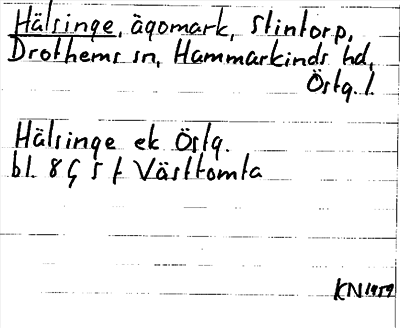 Hälsinge, ägomark, Stintorp,
Drothems sn, Hammarkinds hd,
Östg. l.
Hälsinge ek Östg.
bl. 8 G 5 f Västtomta
KN 1959